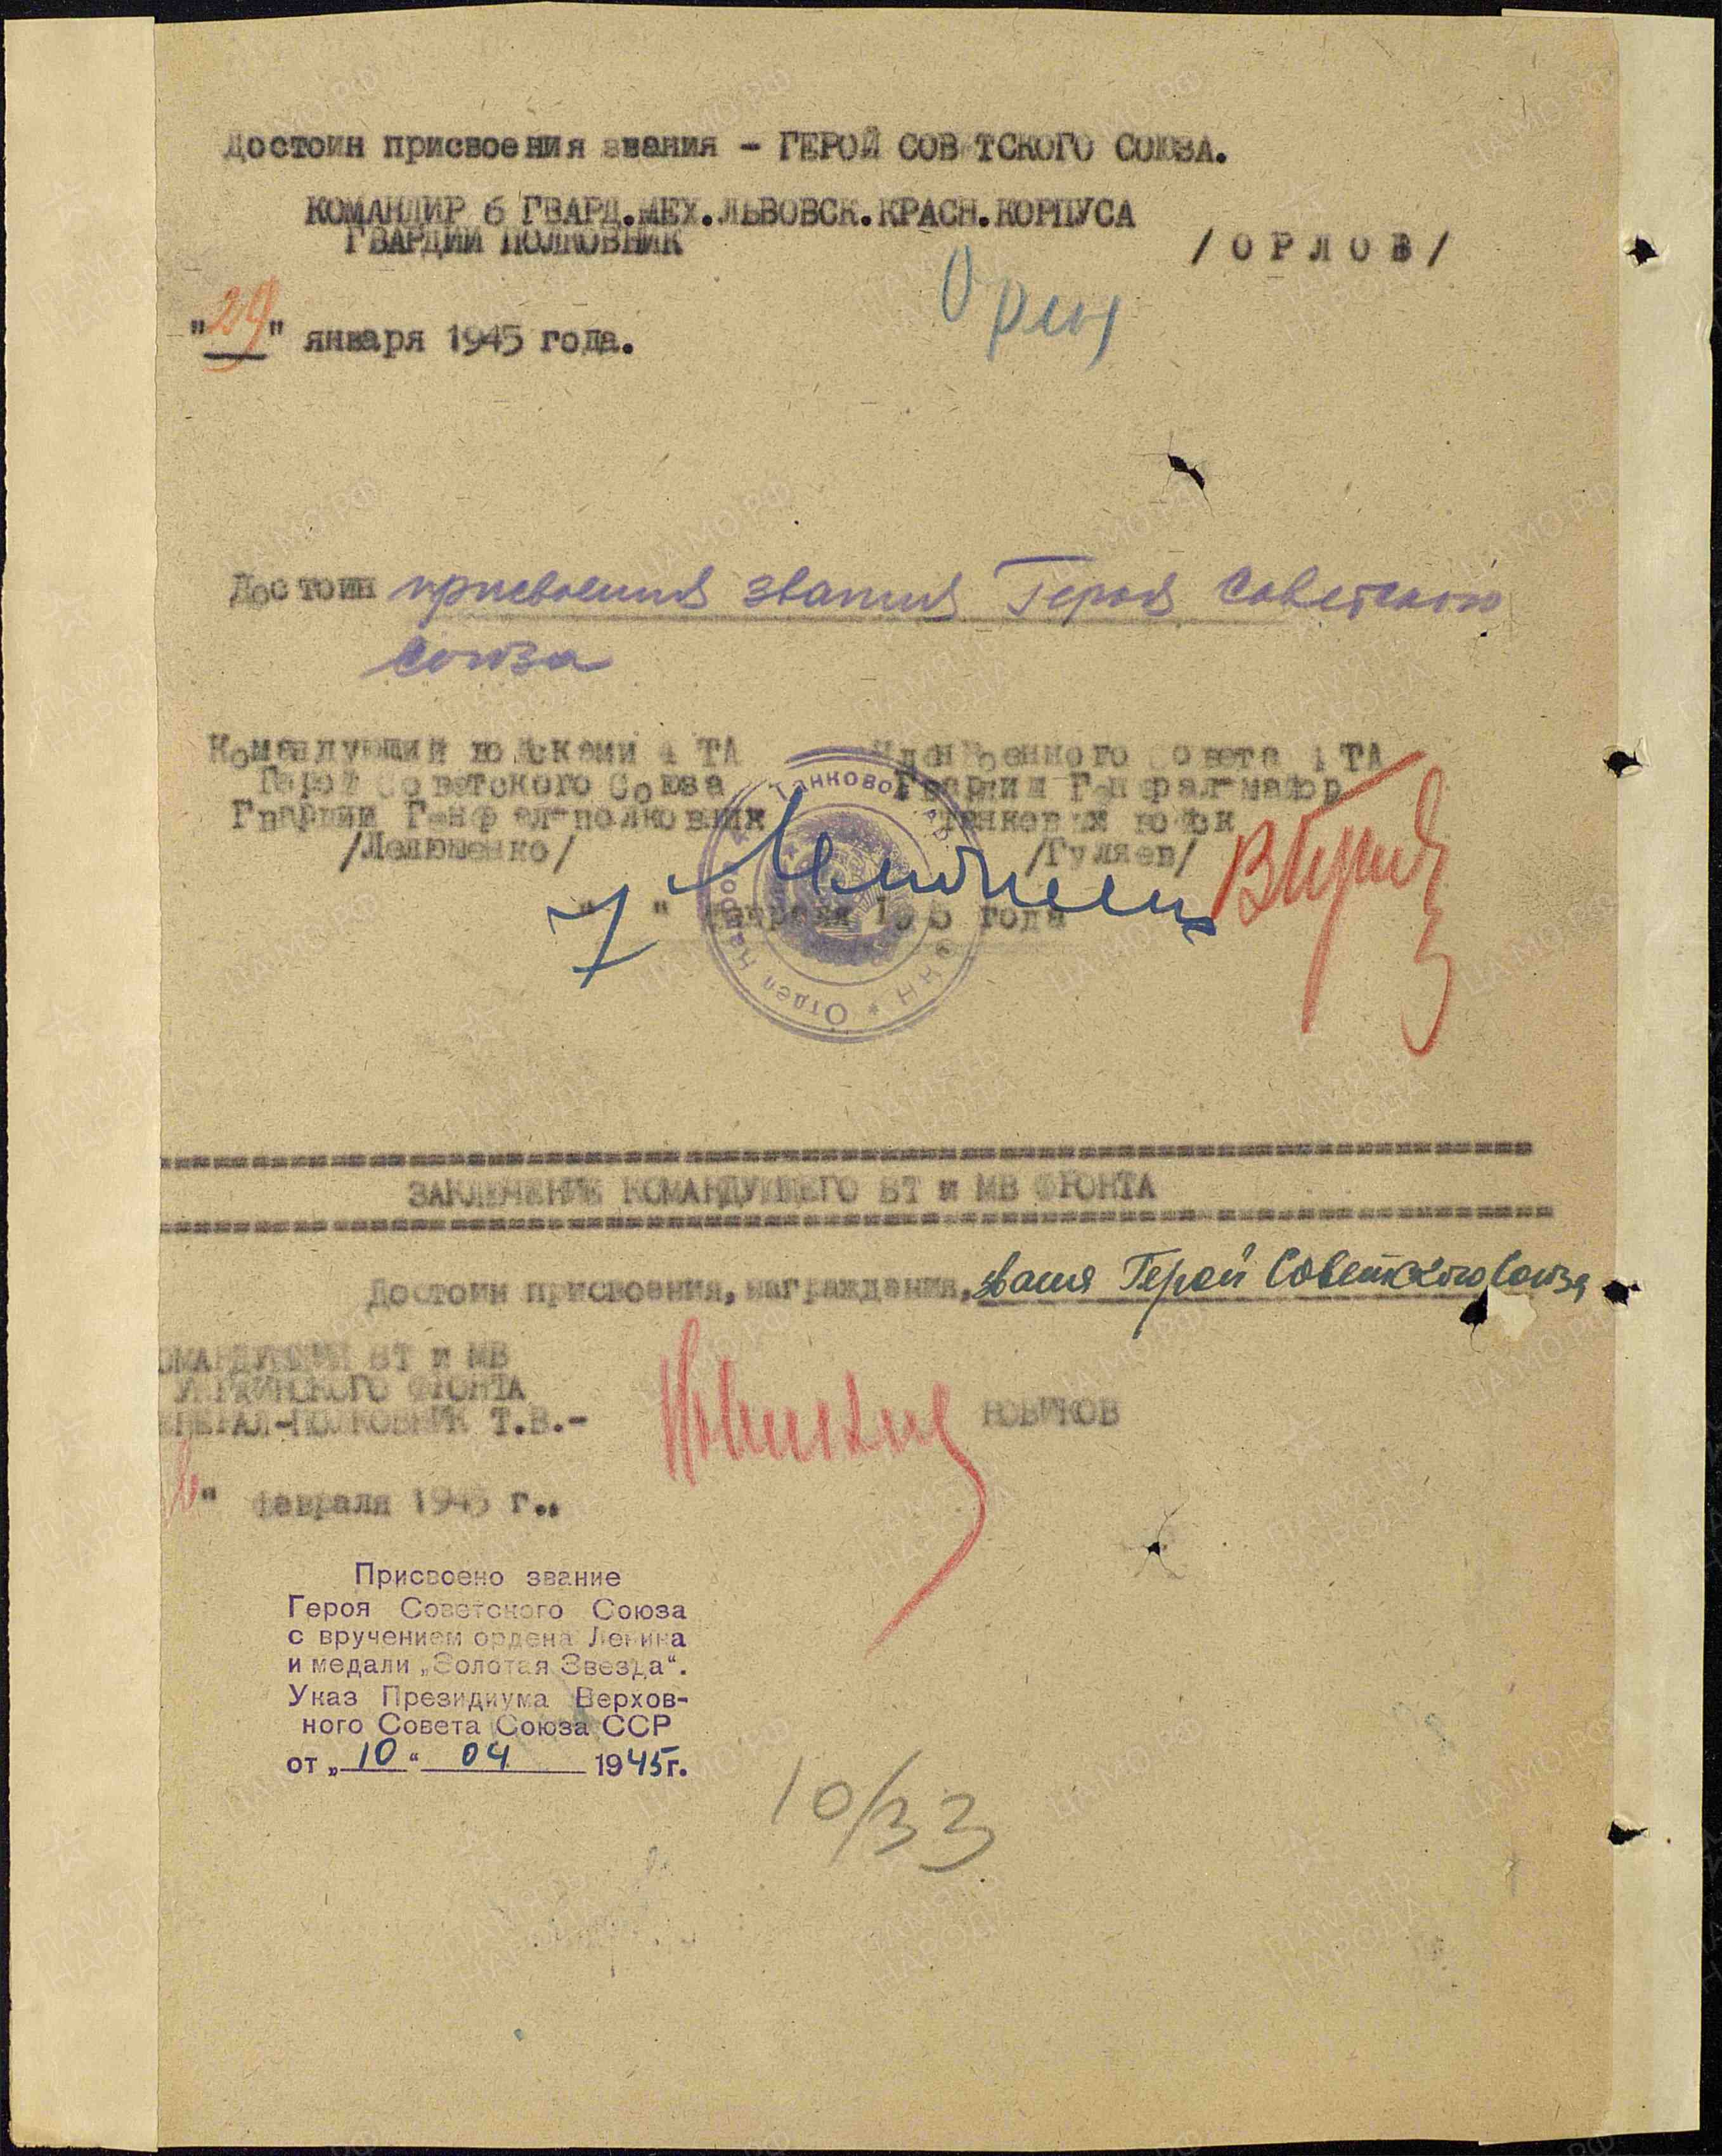 Достоин присвоения звания - ГЕРОЙ СОВ ТСКОГО СОЮЗА.
КОМАНДИР 6 ГВАРД.МЕХ.ЛЬВОВСК.КРАСН.КОРПУСА
ГВАРДИИ ПОЛКОВНИК
/ОРЛОВ/
"29" января 1945 года.
Достоин присвоения звания Героя Советского
Союза
Командующий войсками 4 ТА
Герой Советского Союза
Гвардии Генерал-полковник
/Лелюшенко/
Член Военного Совета 4 ТА
Гвардии Генерал-майор
танковых войск
/Гуляев/
7 " февраля 1945 года
Танковой
Отдел
ЗАКЛЮЧЕНИЕ КОМАНДУЮЩЕГО БТ и МВ ФРОНТА
Достоин присвоения, награждения, звания Герой Советского Союза
ОМАНДУЮЩИЙ БТ и МВ
УКРАИНСКОГО ФРОНТА
ЕНЕРАЛ-ПОЛКОВНИК Т.В.-
НОВИКОВ
" февраля 1945 г..
Присвоено звание
Героя Советского Союза
с вручением ордена Ленина
и медали „Золотая Звезда“.
Указ Президиума Верхов-
ного Совета Союза ССР
от „10“ 04 1945г.
10/33